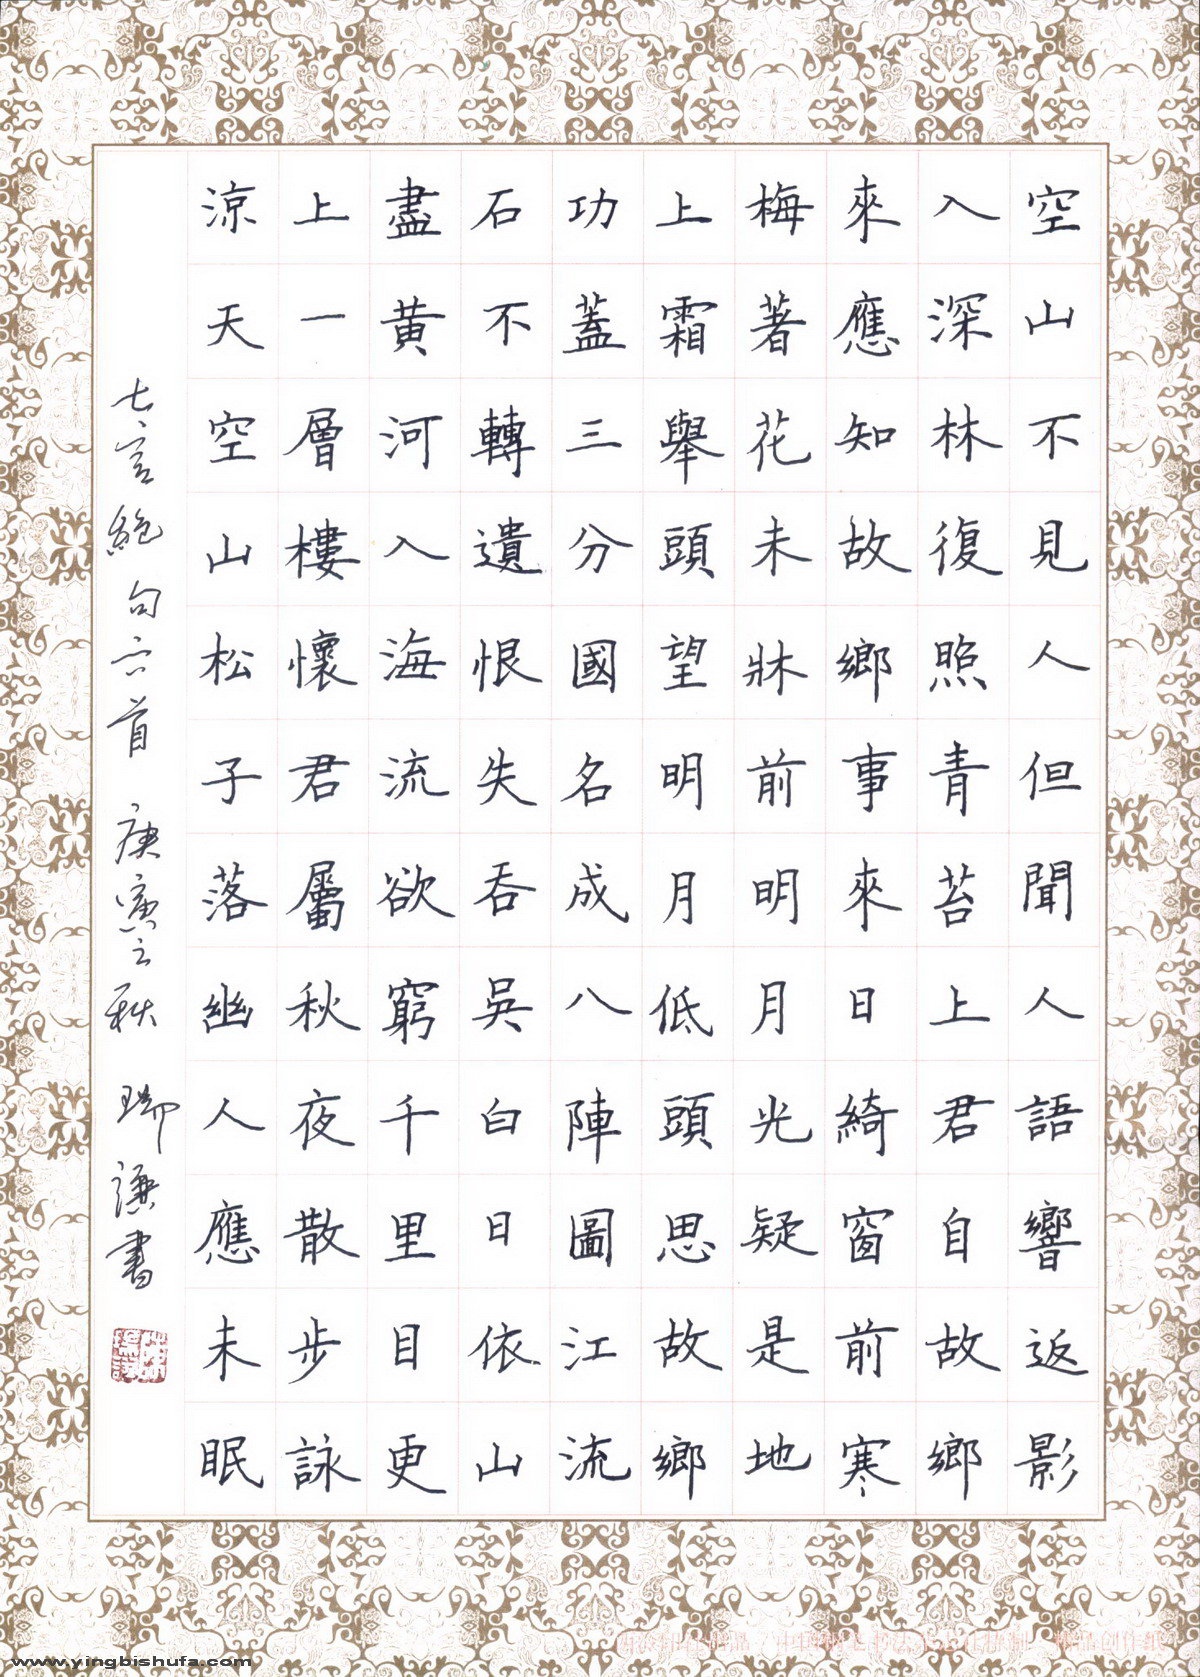 空山不見人但聞人語響返影
入深林復照青苔上君自故鄉
來應知故鄉事來日綺窗前寒
梅著花未牀前明月光疑是地
上霜舉頭望明月低頭思故鄉
功蓋三分國名成八陣圖江流
石不轉遺恨失吞吳白日依山
盡黃河入海流欲窮千里目更
上一層樓懷君屬秋夜散步詠
涼天空山松子落幽人應未眠
七言絕句六首 庚寅之秋 瑞謙書
www.yingbishufa.com